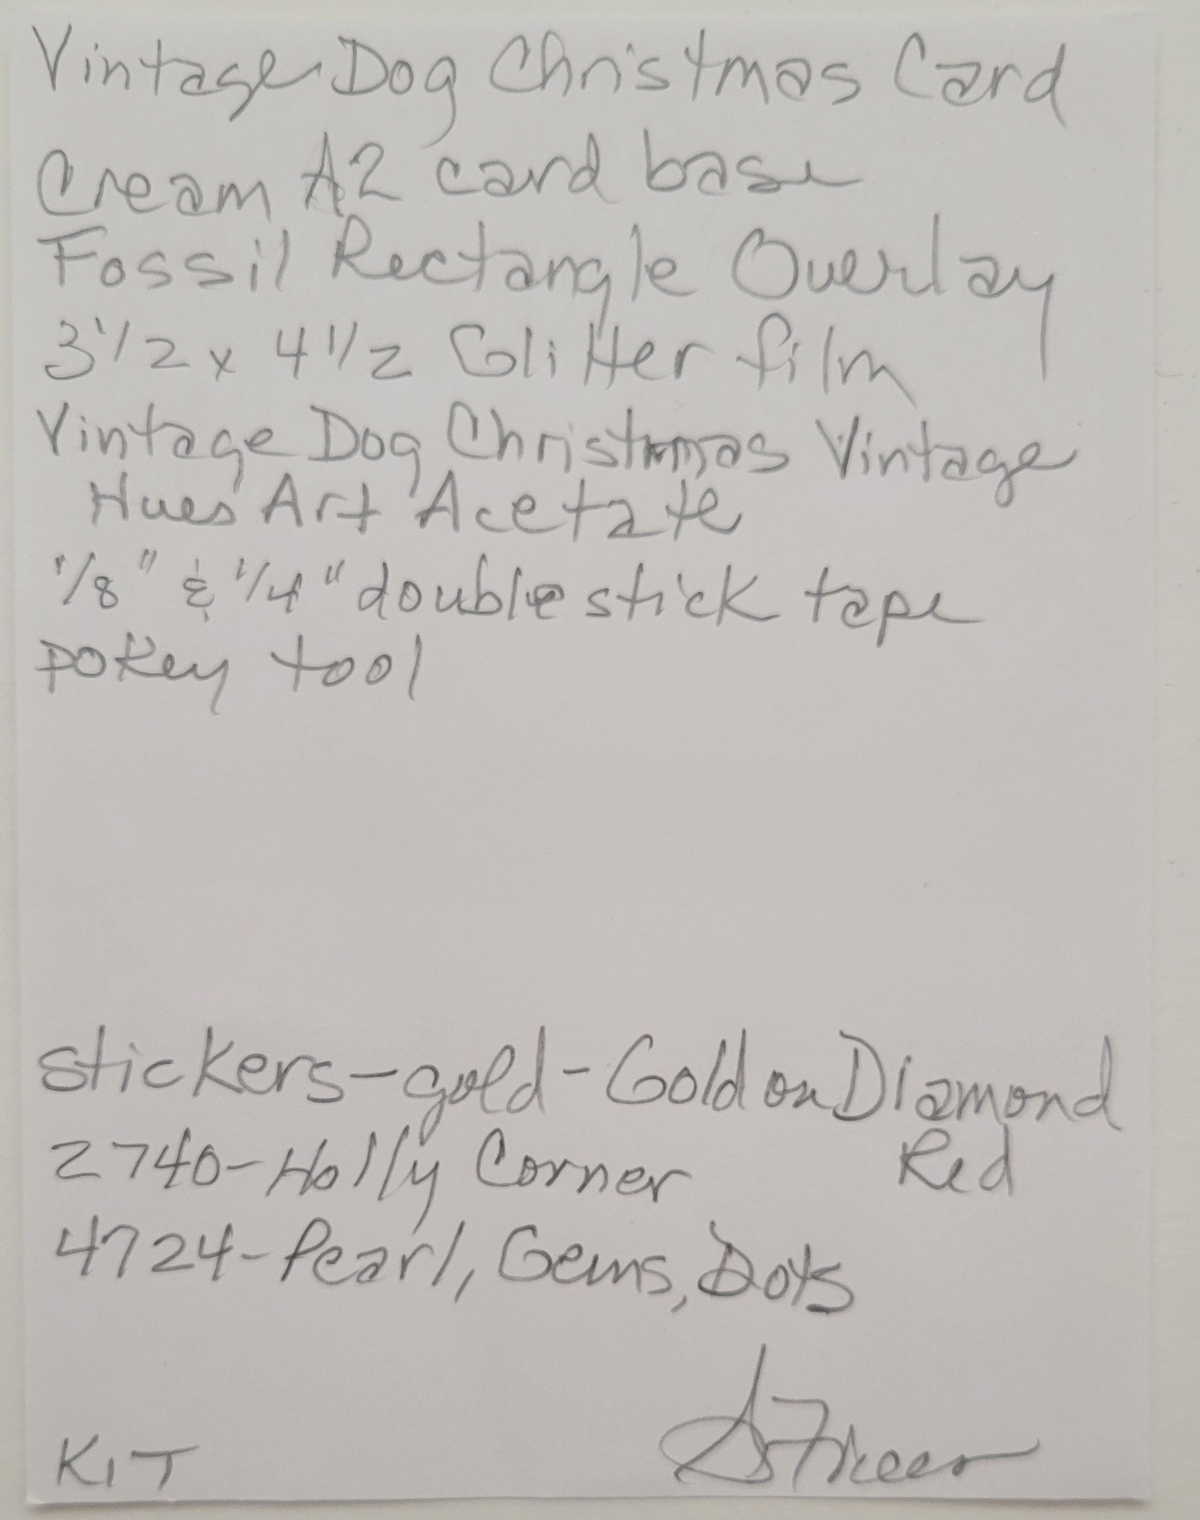 Vintage Dog Christmas Card
Cream A2 card base
Fossil Rectangle Overlay
3 1/2 x 4 1/2 Glitter film
Vintage Dog Christmas Vintage
Hues Art Acetate
1/8" & 1/4" double stick tape
pokey tool
stickers-gold-Gold on Diamond
Red
2740-Holly Corner
4724-Pearl, Gems, Dots
KIT